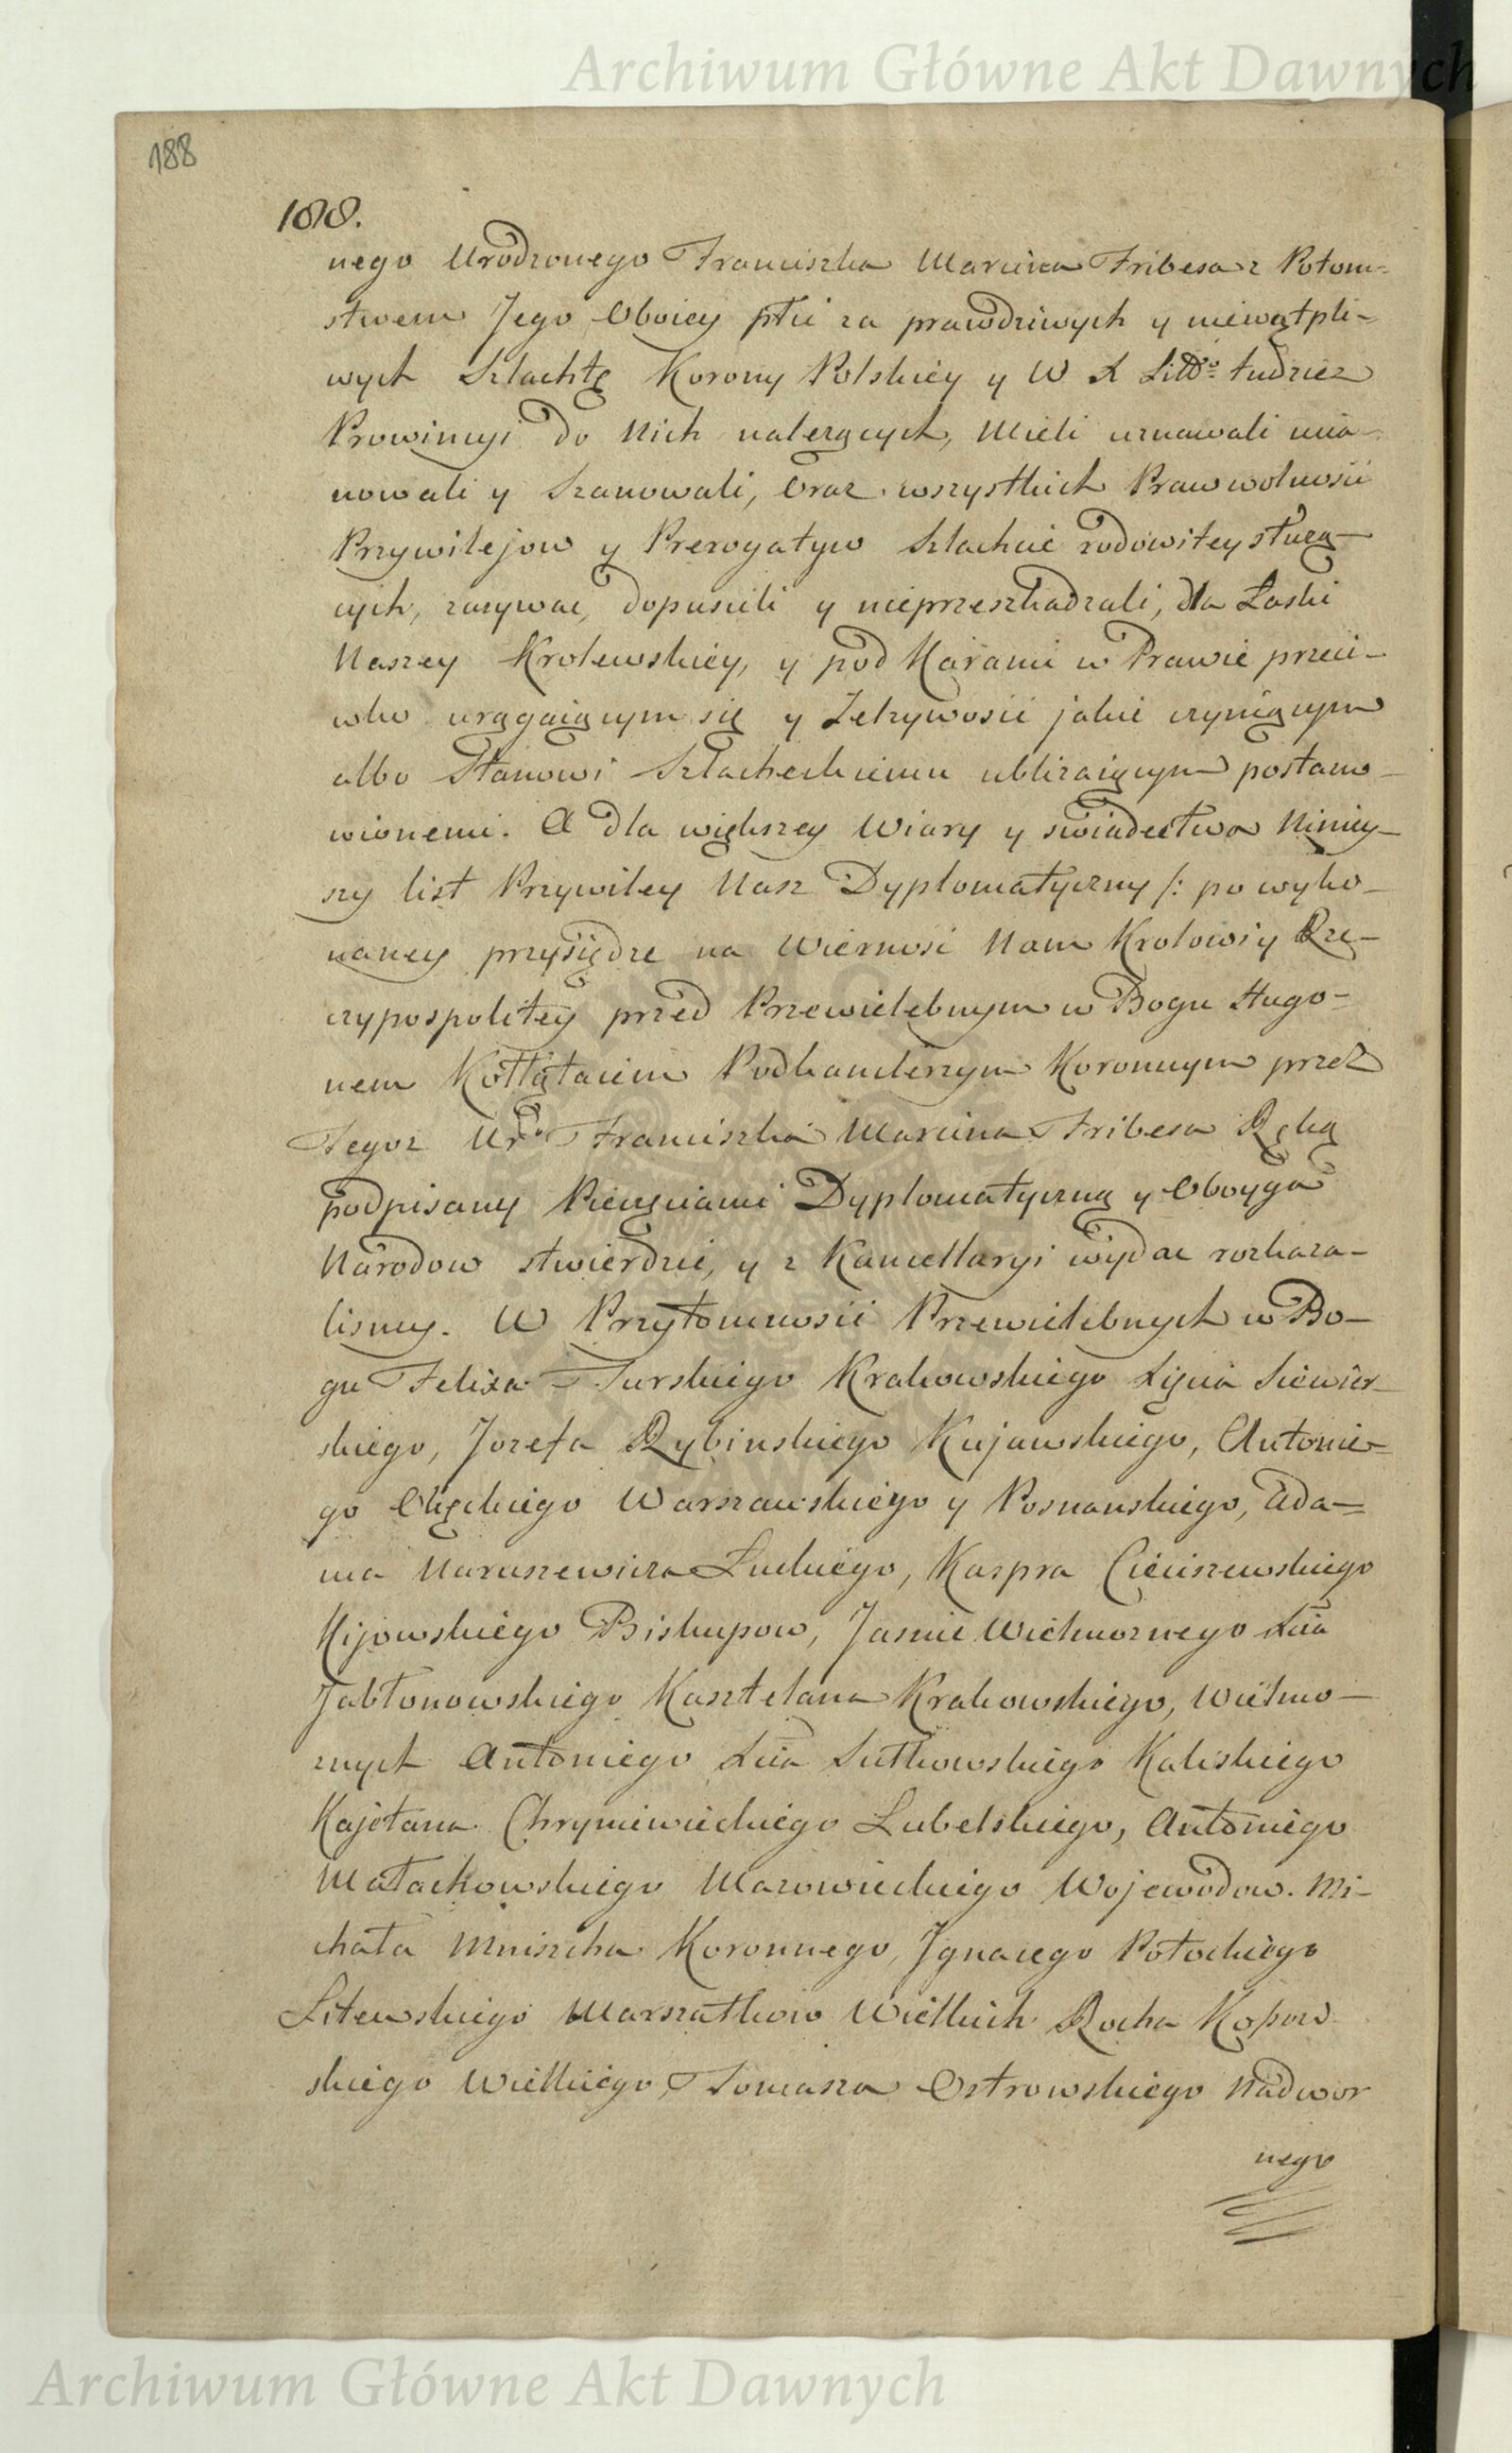 Archiwum Główne Akt Dawnych
188
188.
nego Urodzonego Franciszka Marcina Fribesa z Potom=
stwem Jego Oboiey płci za prawdziwych y niewątpli-
wych Szlachtę Korony Polskiéy y W X Litt⁰ tudziez
Prowincyi do Nich nalezących, Mieli uznawali mia-
nowali y Szanowali, Oraz wszystkich Praw wolnosci
Przywilejow y Prerogatyw Szlachcie rodowitey służą-
cych, zazywac, dopuscili y nieprzeszkadzali, dla Łaski
Naszey Krolewskiéy, y pod Karami w Prawie przeci-
wko urągaiącym się y Zelzywosci jakie czyniącym
albo Stanowi Szlacheckiemu ubliżaiącym postano-
wionemi. A dla większey Wiary y swiadectwa Niniey-
szy list Przywiley Nasz Dyplomatyczny /: po wyko-
naney przysiędze na Wiernosć Nam Krolowi y Rze-
czypospolitéy przed Przewielebnym w Bogu Hugo-
nem Kołłątaiem Podkanclerzym Koronnym przez
Tegoz Ur⁰ Franciszka Marcina Fribesa Ręką
podpisany Pieczęciami Dyplomatyczną y Oboyga
Narodow stwierdzić, y z Kancellaryi wydac rozkaza-
lismy. W Przytomnosci Przewielebnych w Bo-
gu Felixa Turskiego Krakowskiego Xięcia Siewier-
skiego, Jozefa Rybinskiego Kujawskiego, Antonie-
go Okęckiego Warszawskiego y Poznanskiego, Ada=
ma Naruszewicza Łuckiego, Kaspra Cieciszewskiego
Kijowskiego Biskupow, Jasnie Wielmoznego Xcia
Jabłonowskiego Kasztelana Krakowskiego, Wielmo-
znych Antoniego Xcia Sułkowskiego Kaliskiego
Kajetana Chryniewieckiego Lubelskiego, Antoniego
Małachowskiego Mazowieckiego Wojewodow. Mi-
chała Mniszcha Koronnego, Jgnacego Potockiego
Litewskiego Marszałkow Wielkich Rocha Kossow
skiego Wielkiégo, Tomasza Ostrowskiego Nadwor
nego
Archiwum Główne Akt Dawnych